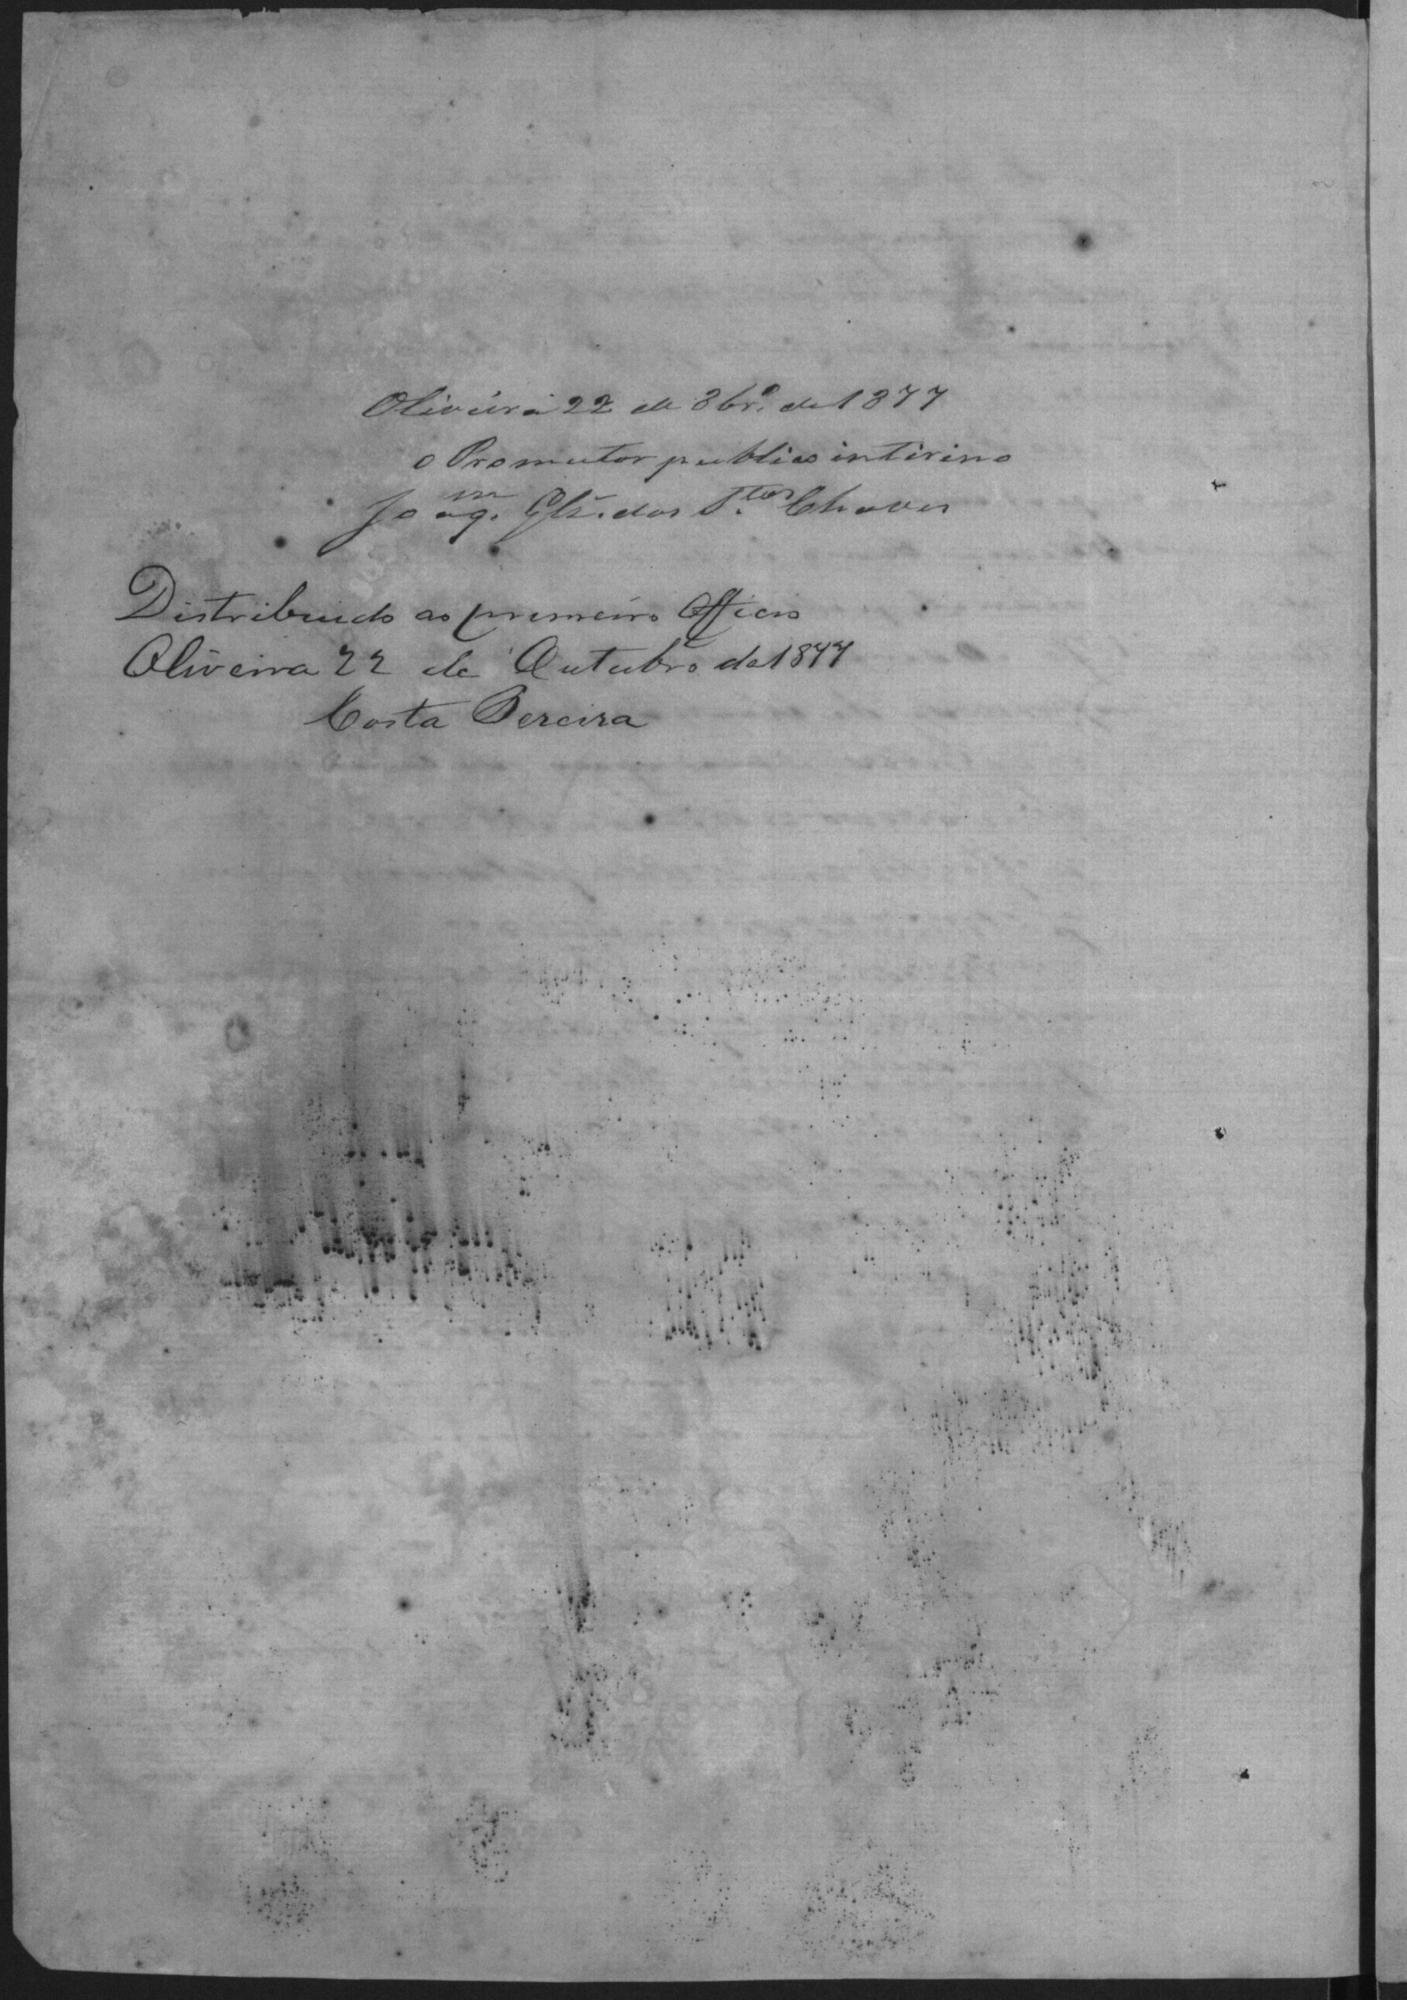 Oliveira 22 de 8br.º de 1877
o Promutor publico intirino
Joaqᵐ. dos S.tos Chaves
Distribuido ao primeiro Officio
Oliveira 22 de Outubrº de 1877
Costa Pereira